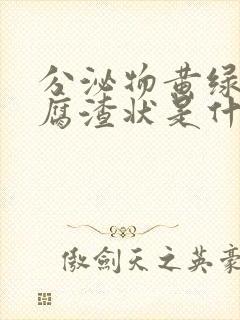 分泌物黄绿
腐渣状是什
傲劍天之英豪